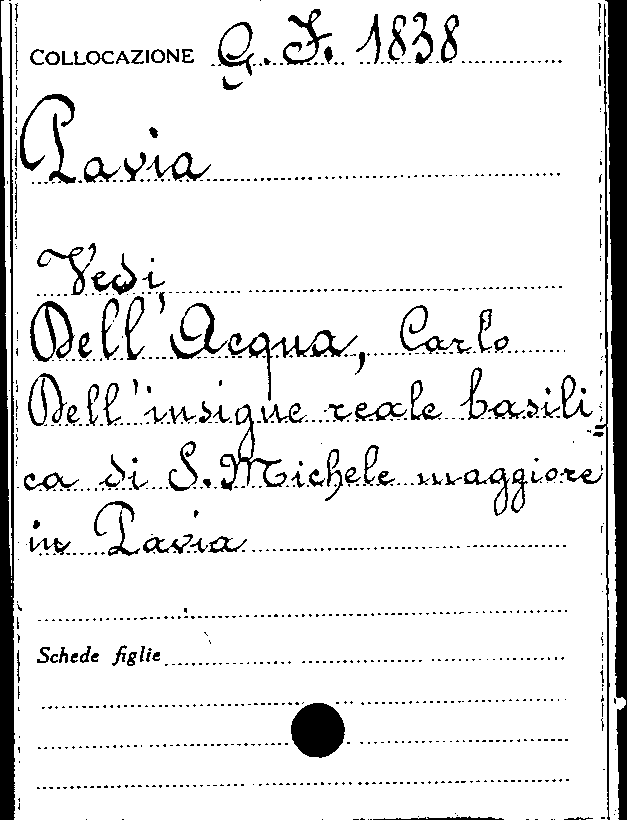 COLLOCAZIONE G. F. 1838
Pavia
Vedi
Dell'Acqua, Carlo
Dell'insigne reale basili=
ca di S. Michele maggiore
in Pavia
Schede figlie